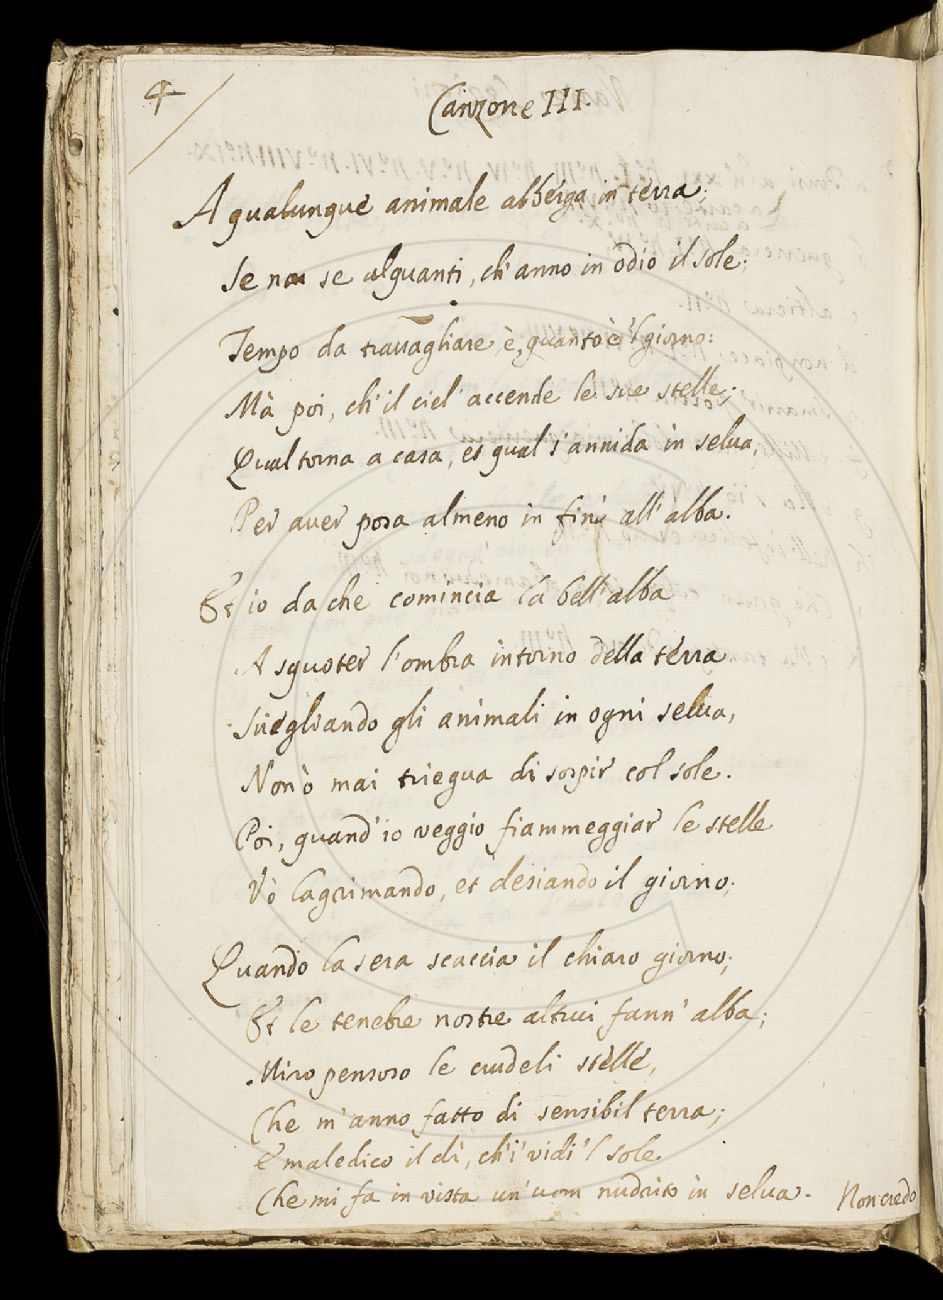 4
Canzone III.
A qualunque animale alberga in terra;
Se non se alquanti, ch'anno in odio il sole;
Tempo da travagliare è, quanto è 'l giorno:
Mà poi, ch'il ciel' accende le sue stelle;
Qual torna a casa, et qual s'annida in selva,
Per aver posa almeno in fin' all'alba.
Et io da che comincia la bell'alba
A squoter l'ombra intorno della terra
Svegliando gli animali in ogni selva,
Non ò mai triegua di sospir col sole.
Poi, quand'io veggio fiammeggiar le stelle
Vò lagrimando, et desiando il giorno;
Quando la sera scaccia il chiaro giorno;
Et le tenebre nostre altrui fann' alba;
Miro pensoso le crudeli stelle,
Che m'anno fatto di sensibil terra;
E maledico il dì, ch'i' vidi 'l sole
Che mi fa in vista un'uom nudrito in selva.
Non credo